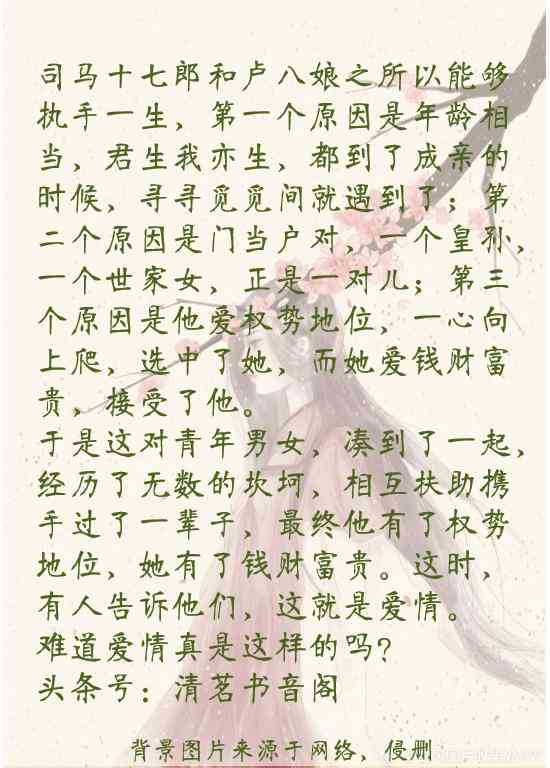 司马十七郎和卢八娘之所以能够
执手一生，第一个原因是年龄相
当，君生我亦生，都到了成亲的
时候，寻寻觅觅间就遇到了；第
二个原因是门当户对，一个皇孙，
一个世家女，正是一对儿；第三
个原因是他爱权势地位，一心向
上爬，选中了她，而她爱钱财富
贵，接受了他。
于是这对青年男女，凑到了一起，
经历了无数的坎坷，相互扶助携
手过了一辈子，最终他有了权势
地位，她有了钱财富贵。这时，
有人告诉他们，这就是爱情。
难道爱情真是这样的吗?
头条号：清茗书音阁
背景图片来源于网络，侵删